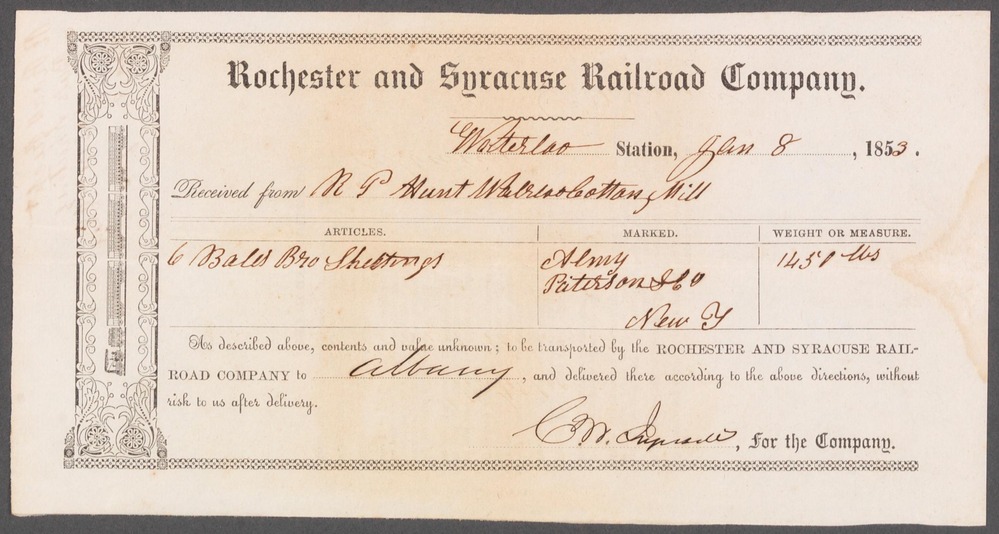 Rochester and Syracuse Railroad Company.
Waterloo Station, Jan 8, 1853.
Received from R P Hunt Waterloo Cotton Mill
ARTICLES. MARKED. WEIGHT OR MEASURE.
6 Bales Bro Sheetings Almy 1451 lbs
Paterson & Co
New Y
As described above, contents and value unknown; to be transported by the ROCHESTER AND SYRACUSE RAIL-
ROAD COMPANY to Albany, and delivered there according to the above directions, without
risk to us after delivery.
C. W., For the Company.